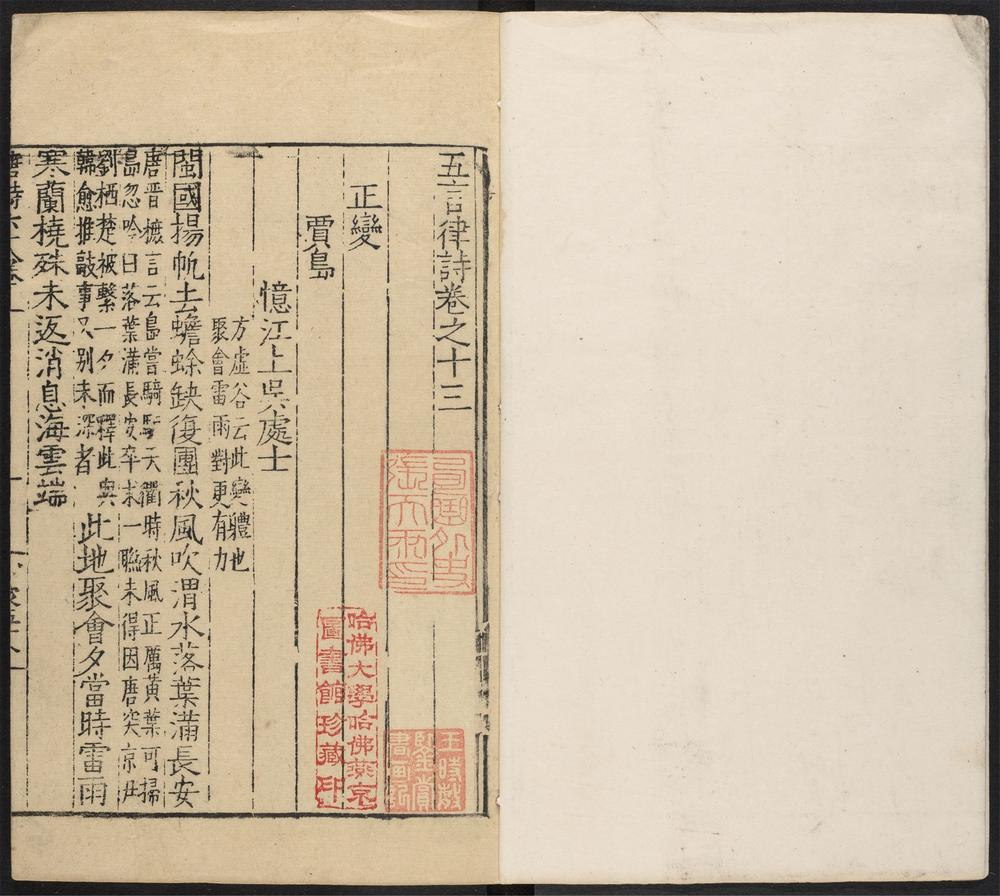 五言律詩卷之十三
正變
賈島
憶江上吳處士
方虛谷云此變體也
聚會雷雨對更有力
閩國揚帆去蟾蜍缺復團秋風吹渭水落葉滿長安
唐晋摭言云島嘗騎驢天衢時秋風正厲黄葉可掃
島忽吟曰落葉滿長安卒求一聯未得因唐突京尹
劉栖楚被繫一夕而釋此與
韓愈推敲事又別未深者
此地聚會夕當時雷雨
寒蘭橈殊未返消息海雲端
哈佛大學哈佛燕京
圖書館珍藏印
王時敏
鑒賞
書畫記